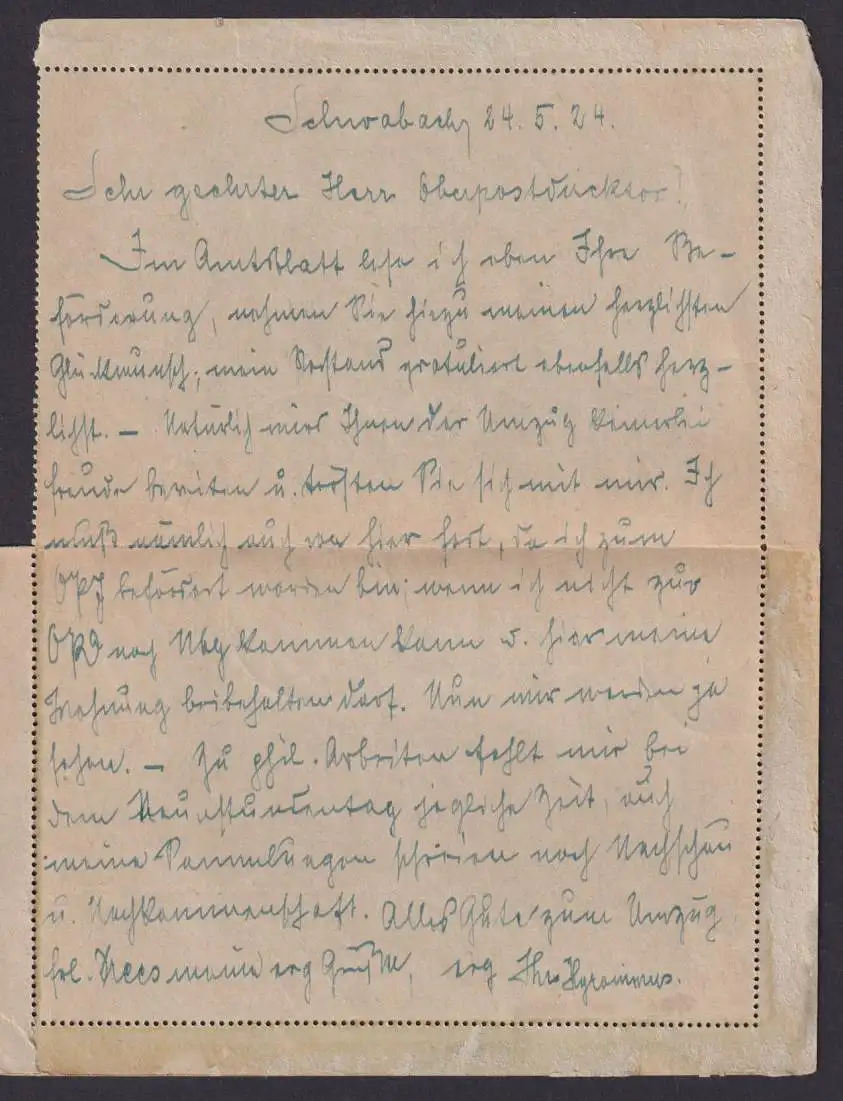 Schwabach, 24. 5. 24.
Sehr geehrter Herr Oberpostdirektor!
Im Amtsblatt lese ich eben Ihre Be-
förderung, nehmen Sie hiezu meinen herzlichsten
Glückwunsch, mein Vorstand gratuliert ebenfalls herz-
lichst. — Natürlich wird Ihnen der Umzug keinerlei
Freude bereiten u. trösten Sie sich mit mir. Ich
muß nämlich auch von hier fort, da ich zum
OPJ befördert worden bin; wenn ich nicht zur
OPD nach Nbg kommen kann u. hier meine
Wohnung beibehalten darf. Nun wir werden ja
sehen. — Zu phil. Arbeiten fehlt mir bei
dem Neunstundentag jegliche Zeit, auch
meine Sammlungen schreien nach Nachschau
u. Nachkommenschaft. Alles Gute zum Umzug
Frl. Nees meine erg Grüße, erg Ihr